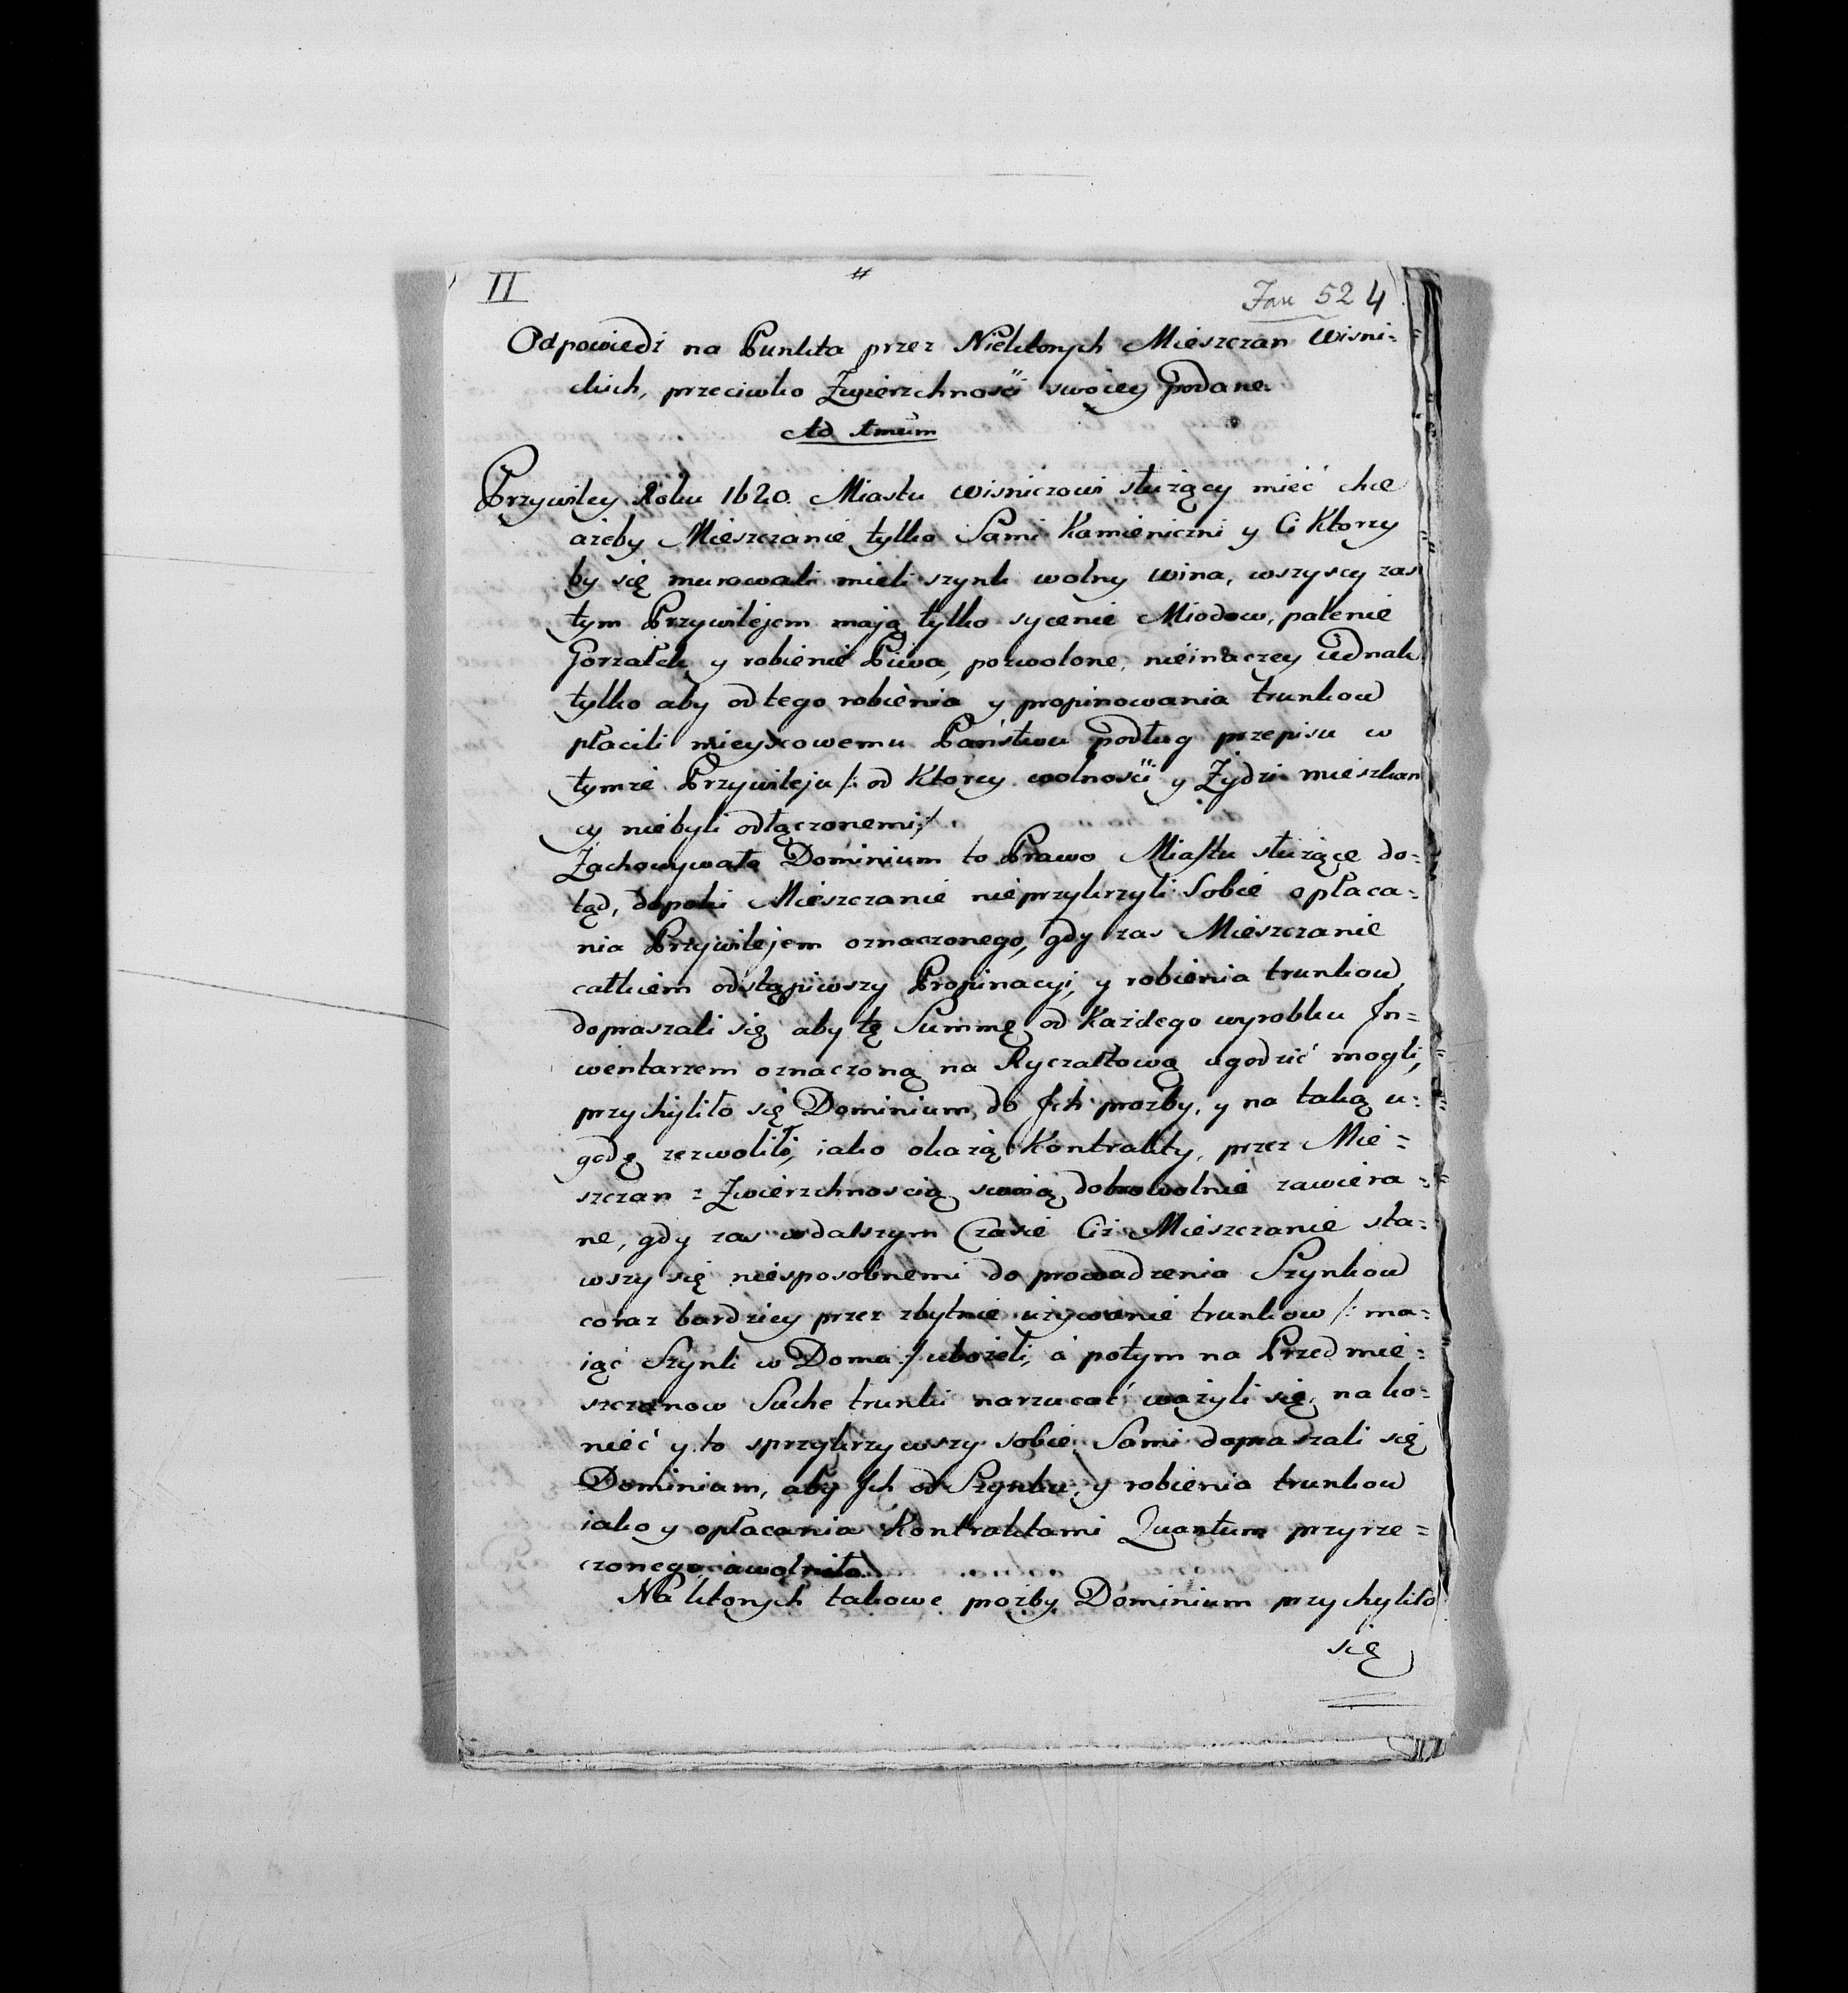 II
Fasc 52 4
Odpowiedź na Punkta przez Niektorych Mieszczan Wisni-
ckich, przeciwko Zwierzchności swoiey Podane.
Ad 1mum
Przywiley Roku 1620. Miastu Wisniczowi służący mieć chce
ażeby Mieszczanie tylko Sami Kamieniczni y Ci Ktorzy
by się murowali mieli szynk wolny wina, wszyscy zas
tym Przywilejem mają tylko sycenie Miodow, palenie
Gorzałek y robienie Piwa, pozwolone, nieinaczey Jednak
tylko aby od tego robienia y propinowania trunkow
płacili mieyscowemu Państwu Podług przepisu w
tymże Przywileju /: od Ktorey wolności y Żydzi mieszkań
cy niebyli odłączonemi :/
Zachowywało Dominium to Prawo Miastu służące do=
tąd, dopoki Mieszczanie nieprzykrzyli Sobie opłaca=
nia Przywilejem oznaczonego, gdy zas Mieszczanie
całkiem odstąpiwszy Propinacyi, y robienia trunkow
dopraszali się aby tę Summę od Każdego wyrobku In=
wentarzem oznaczoną na Ryczałtową ugodzić mogli,
przychyliło się Dominium do Ich prożby, y na taką u=
godę zezwoliło, iako okażą Kontrakty, przez Mie=
szczan z Zwierzchnoscią swoią dobrowolnie zawiera=
ne, gdy zas w dalszym Czasie Ciż Mieszczanie sta=
wszy się niesposobnemi do prowadzenia Szynkow
coraz bardziey przez zbytnie używanie trunkow /: ma=
iąc Szynk w Domu :/ ubożeli, a potym na Przedmie=
szczanow Suche trunki narzucać ważyli się, nako=
niec y to sprzykrzywszy sobie Sami dopraszali się
Dominium, aby Ich od Szynku, y robienia trunkow
iako y opłacania Kontraktami Quantum przyrze=
czonego uwolniło.
Na ktorych takowe prożby Dominium przychyliło
się